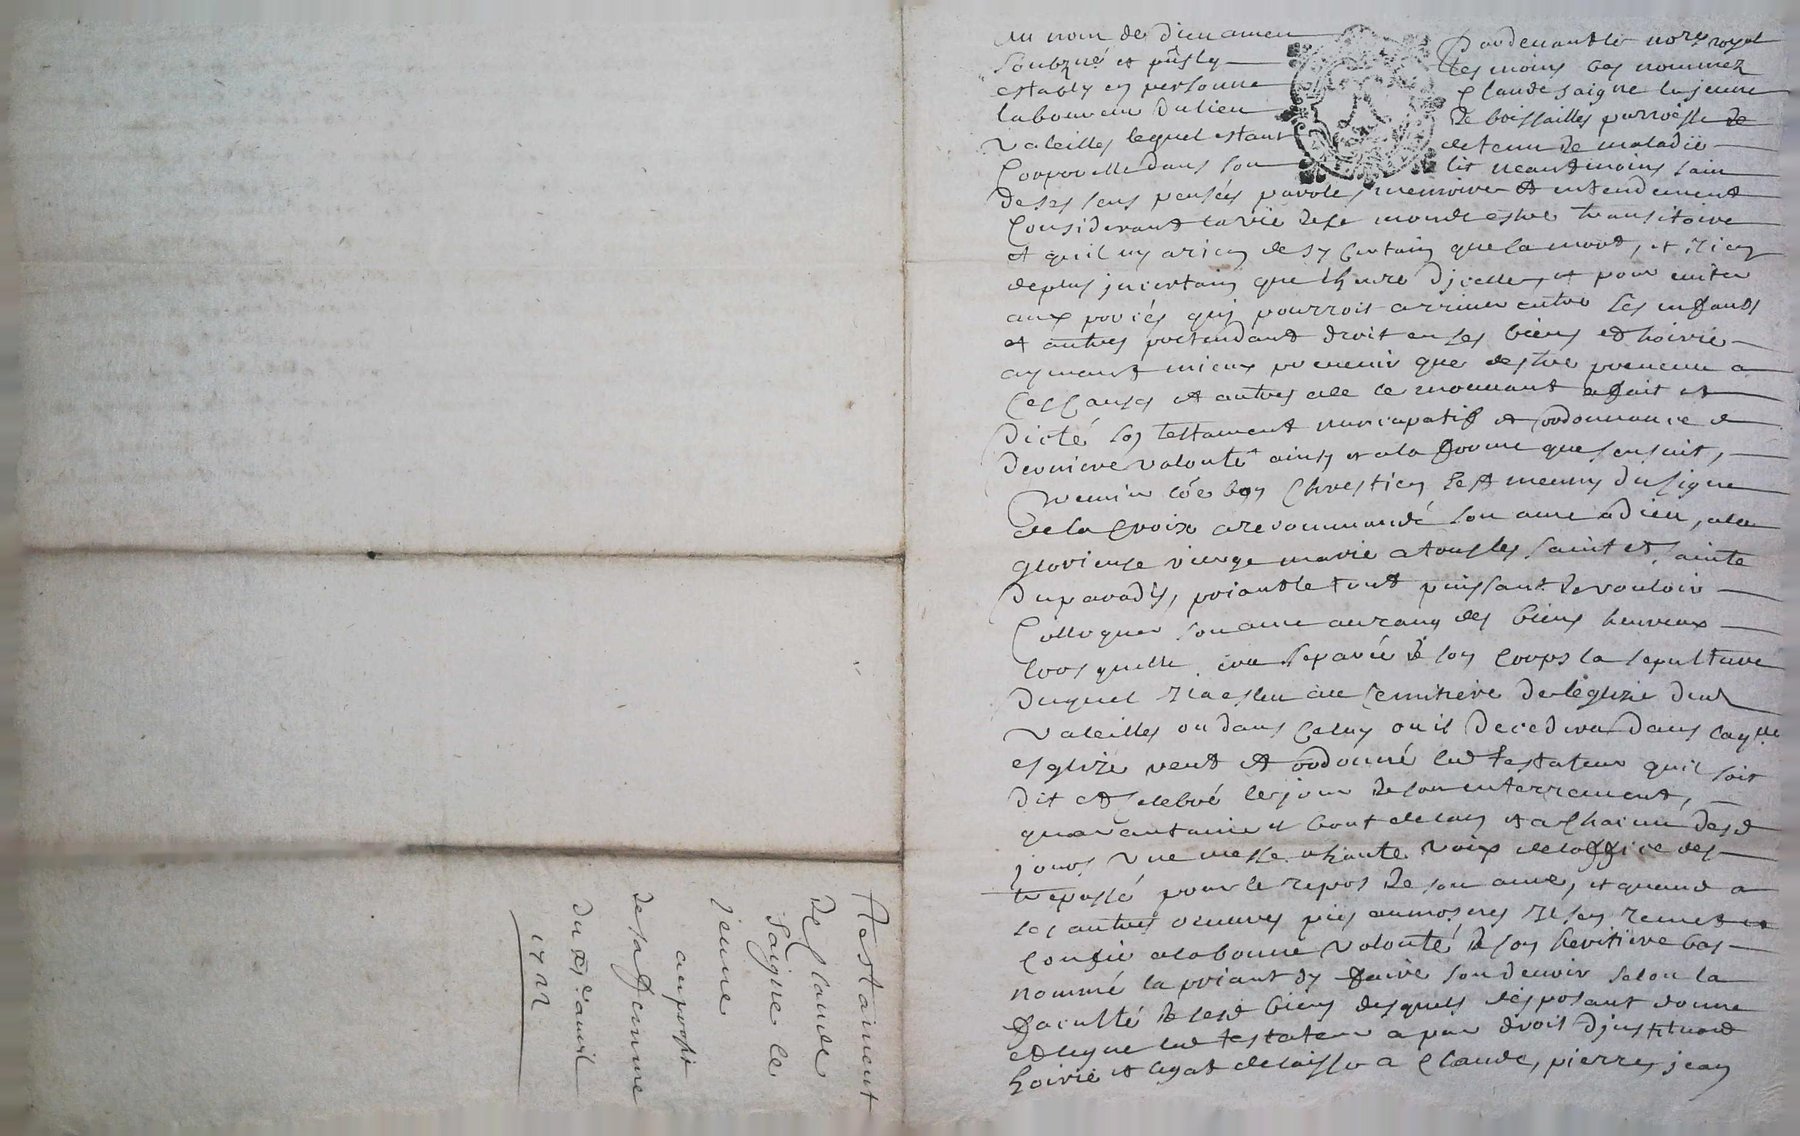 Au nom de Dieu amen Pardevant le nore royal
soubzné et pñts les tesmoins bas nommez
estably en personne Claude Saigne le jeune
laboureur du lieu de boissailles parroisse de
Valeilles lequel estant detenu de maladie
Corporelle dans son lit neantmoins sain
de ses sens pensées paroles memoire et entendement
Considerant la vie de ce monde estre transitoire
et quil ny a rien de sy Certain que la mort, et rien
de plus jncertain que lheure djcelle, et pour eviter
aux procés quj pourroit arriver entre ses enfants
et autres pretendant droit en ses biens et hoirie
aymant mieux prevenir que destre prevenu a
Ces Causes et autres ale ce mouvant a fait et
dicté son testament nuncupatif et ordonnance de
derniere volonté ainsy et a la forme que sensuit,
Premier cõe bon Chrestien sest meuny du signe
de la Croix a recommandé son ame a Dieu, a la
glorieuse vierge marie a tous les saint et sainte
du paradis, priant le tout puissant de vouloir
Colloquer son ame au rang des biens heureux
lors quelle sera separée de son Corps la sepulture
duquel Il a esleu au Cemitiere de léglize dud
Valeilles ou dans Celuy ou il decedera dans laqlle
esglize veut et ordonné led testateur quil soit
dit et Celebré le jour de son enterrement,
quarantaine et bout de lan et a Chacun desd
jours une messe a haute voix de loffice des
trepassé pour le repos de son ame, et quand a
les autres oeuvres pies aumosnes Il sen remet et
Confie a la bonne volonté de son heritiere bas
nommé la priant dy faire son devoir selon la
faculté de sesd biens desquels disposant donne
et legue led testateur a par droit djnstitution
hoirie et legat delaisse a Claude, pierre, jean
Testament
de Claude
Saigne le
jeune
au profit
de sa femme
du avril
1722